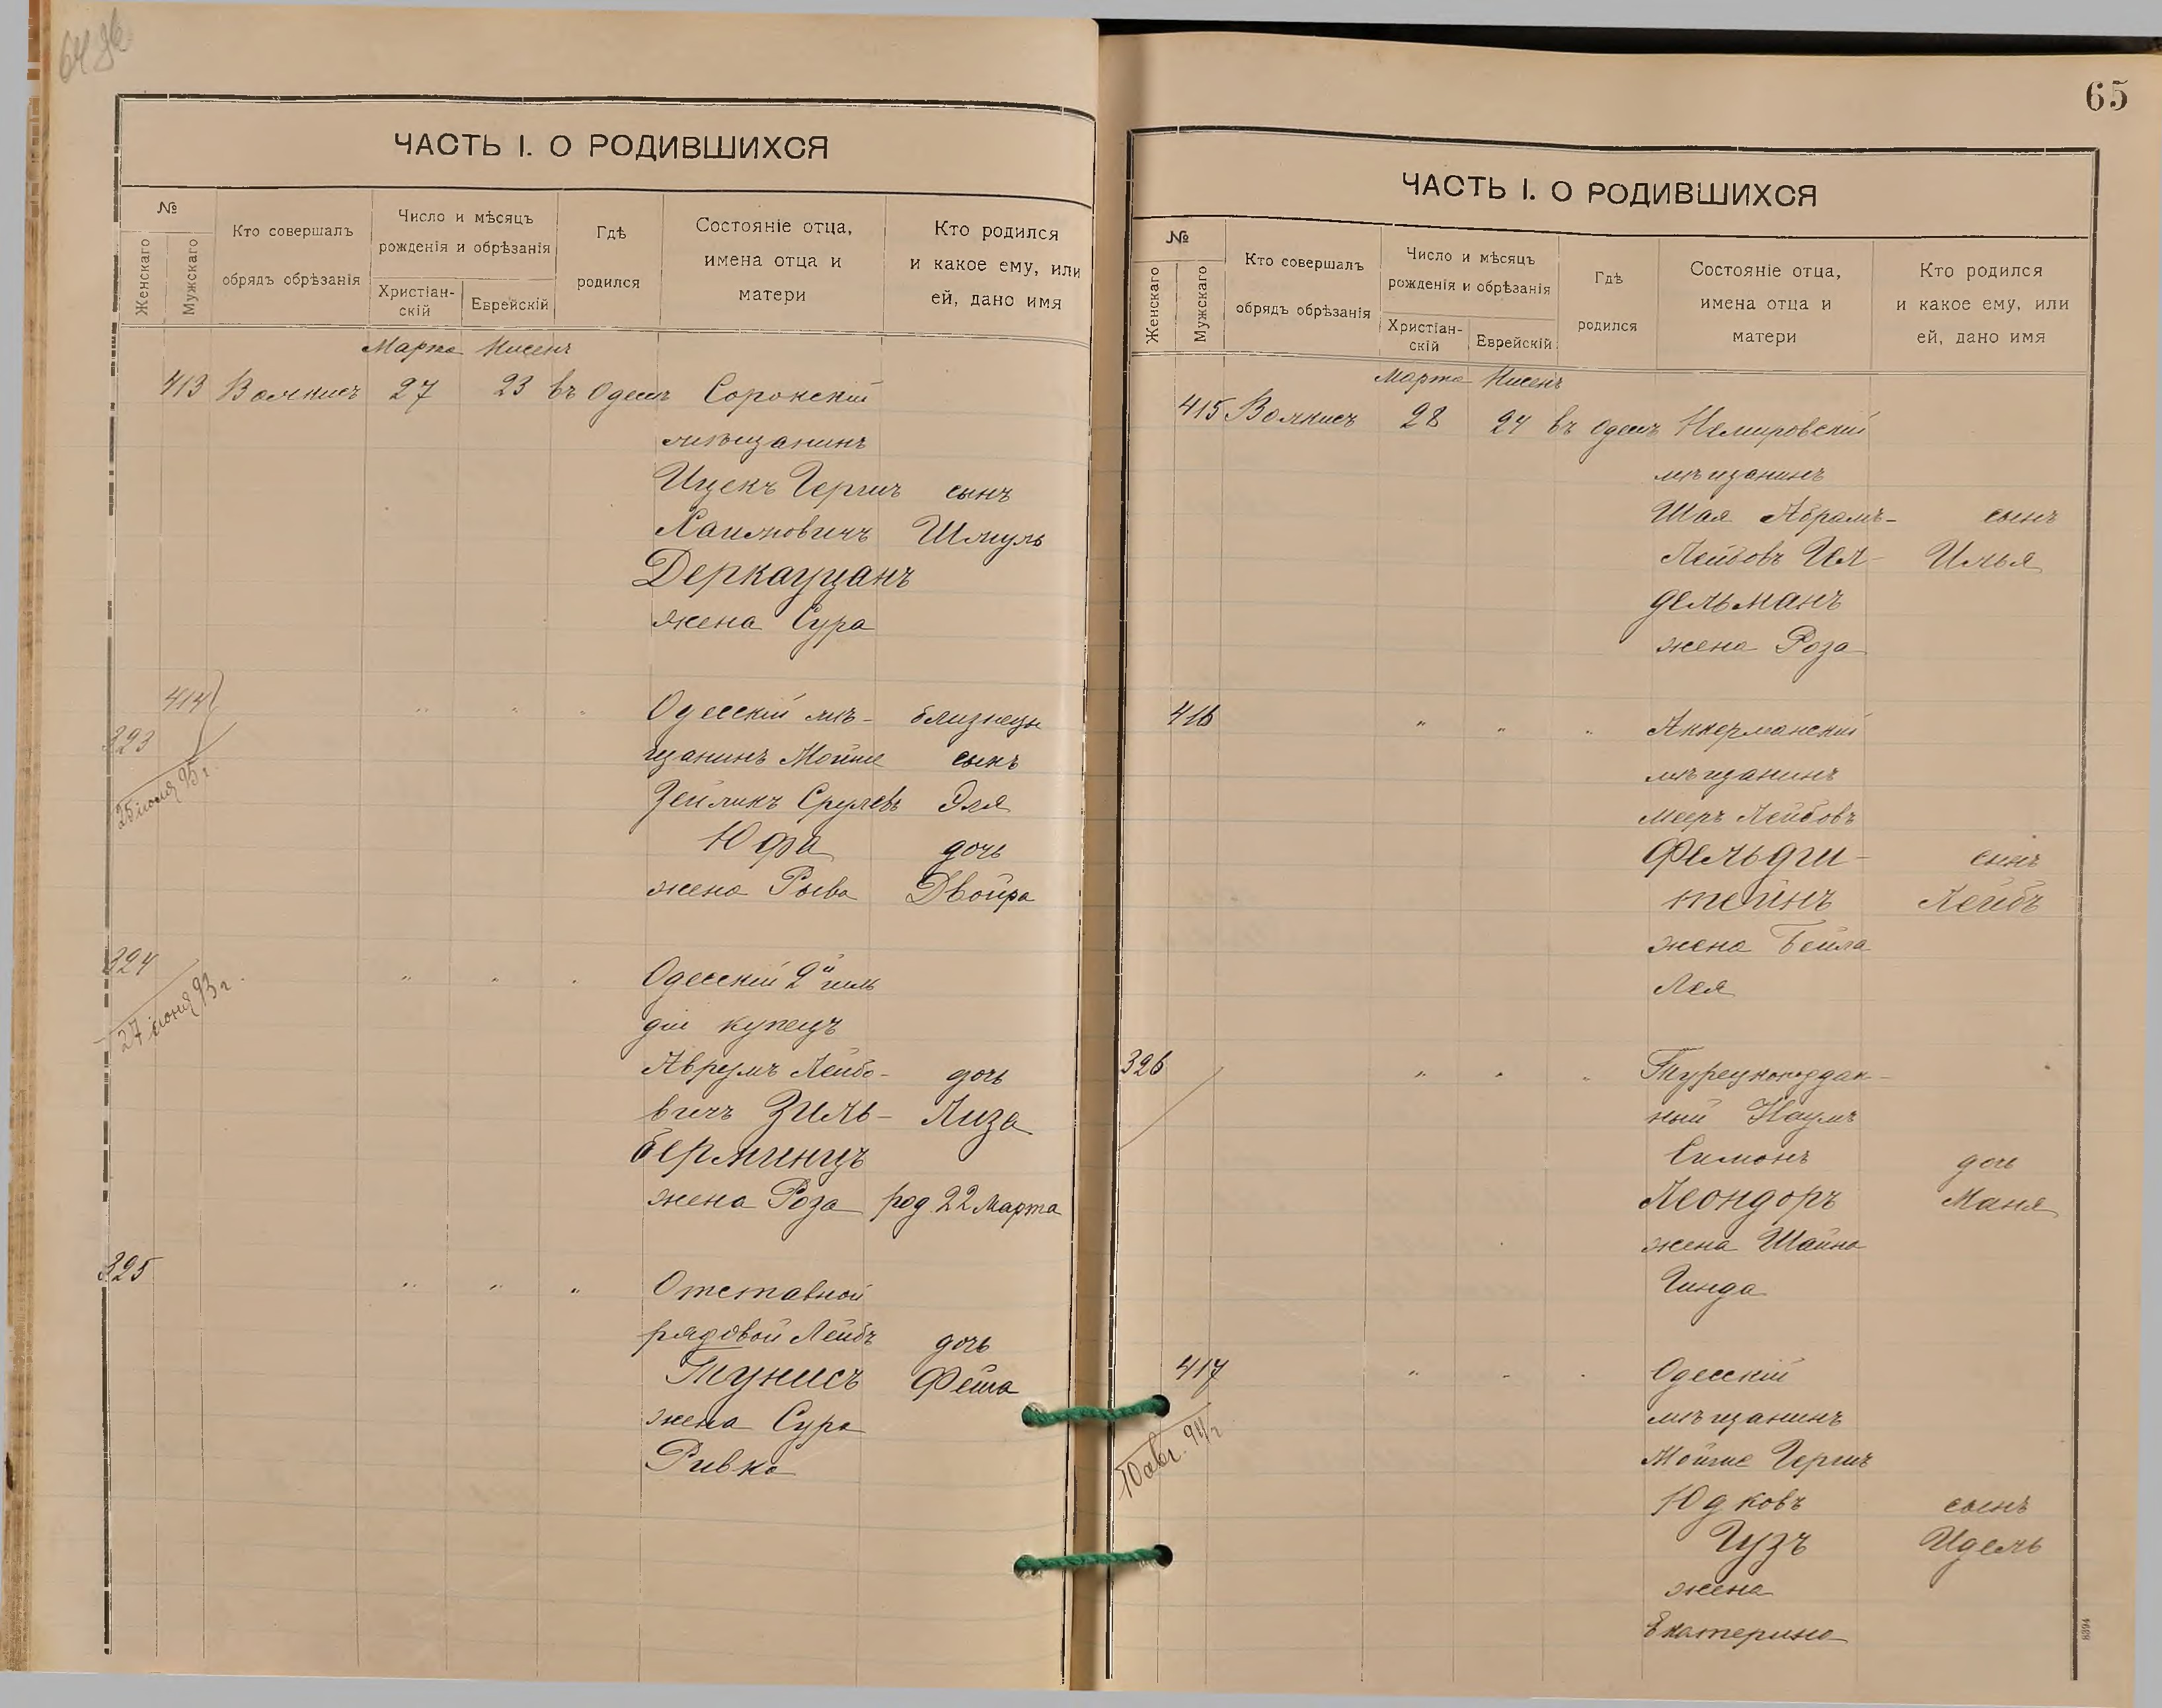 ЧАСТЬ I. О РОДИВШИХСЯ
№
Женскаго
Мужскаго
Кто совершалъ
обрядъ обрѣзанія
Число и мѣсяцъ
рожденія и обрѣзанія
Христіан-
скій
Еврейскій
Гдѣ
родился
Состояніе отца,
имена отца и
матери
Кто родился
и какое ему, или
ей, дано имя
Марта Нисенъ
413 27 23 въ Одессѣ Сорокскій
мѣщанинъ
Ицекъ Гершъ сынъ
Хаимовичъ Шмуль
Деркауцанъ
жена Сура
414 " " " Одесскій мѣ- близнецы
323 щанинъ Мойше сынъ
25 іюля 95 г. Зейликъ Срулевъ Эля
Юфа дочь
жена Рыва Двойра
324 " " " Одесскій 2й гиль
27 іюня 93 г. діи купецъ
Аврумъ Лейбо- дочь
вичъ Зиль- Лиза
берминцъ
жена Роза род. 22 Марта
325 " " " Отставной
рядовой Лейбъ дочь
Тунисъ Фейга
жена Сура
Ривка
65
ЧАСТЬ I. О РОДИВШИХСЯ
№
Женскаго
Мужскаго
Кто совершалъ
обрядъ обрѣзанія
Число и мѣсяцъ
рожденія и обрѣзанія
Христіан-
скій
Еврейскій
Гдѣ
родился
Состояніе отца,
имена отца и
матери
Кто родился
и какое ему, или
ей, дано имя
Марта Нисенъ
415 28 24 въ Одессѣ Немировскій
мѣщанинъ
Шая Абрамъ- сынъ
Лейбовъ Гел- Илья
дельманъ
жена Роза
416 " " " Аккерманскій
мѣщанинъ
Мееръ Лейбовъ
Фельдш- сынъ
тейнъ Лейбъ
жена Бейла
Лея
326 " " " Турецкоподдан-
ный Наумъ
Симонъ дочь
Леондоръ Маня
жена Шайна
Гинда
417 " " " Одесскій
10 авг. 94 г. мѣщанинъ
Мойше Гершъ
Юдковъ сынъ
Гузъ Идель
жена
Екатерина
8394